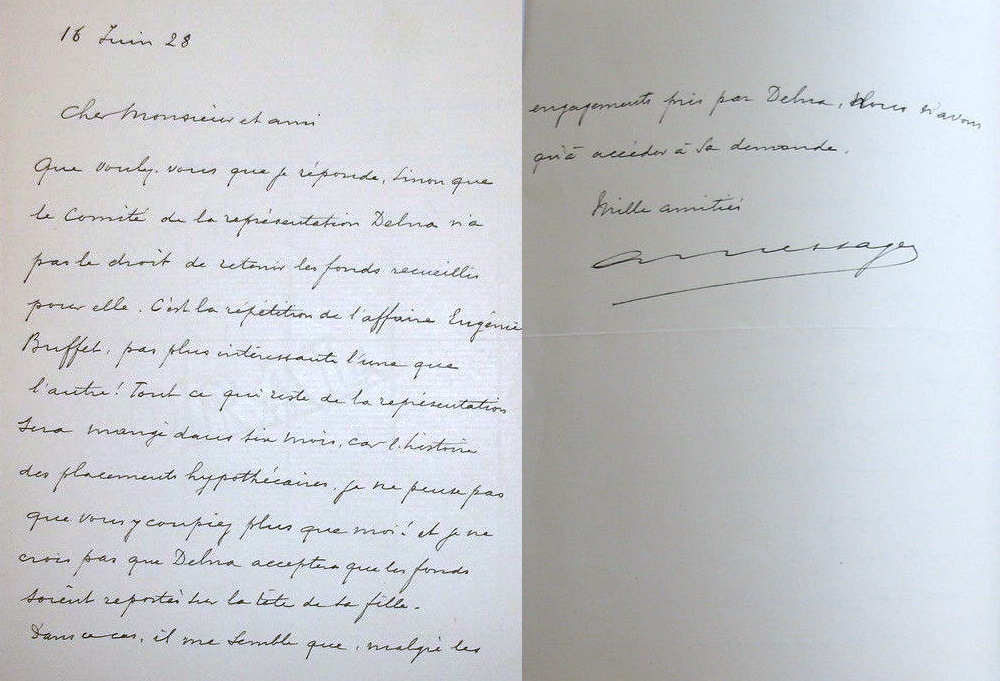 16 Juin 28
Cher Monsieur et ami
Que voulez-vous que je réponde, sinon que
le Comité de la représentation Delna n'a
pas le droit de retenir les fonds recueillis
pour elle. C'est la répétition de l'affaire Eugénie
Buffet, pas plus intéressante l'une que
l'autre! Tout ce qui reste de la représentation
sera mangé dans six mois, car l'histoire
des placements hypothécaires, je ne pense pas
que vous y coupiez plus que moi! et je ne
crois pas que Delna acceptera que les fonds
soient reportés sur la tête de sa fille.
Dans ce cas, il me semble que, malgré les
engagements pris par Delna, Nous n'avons
qu'à accéder à sa demande.
Mille amitiés
A Messager